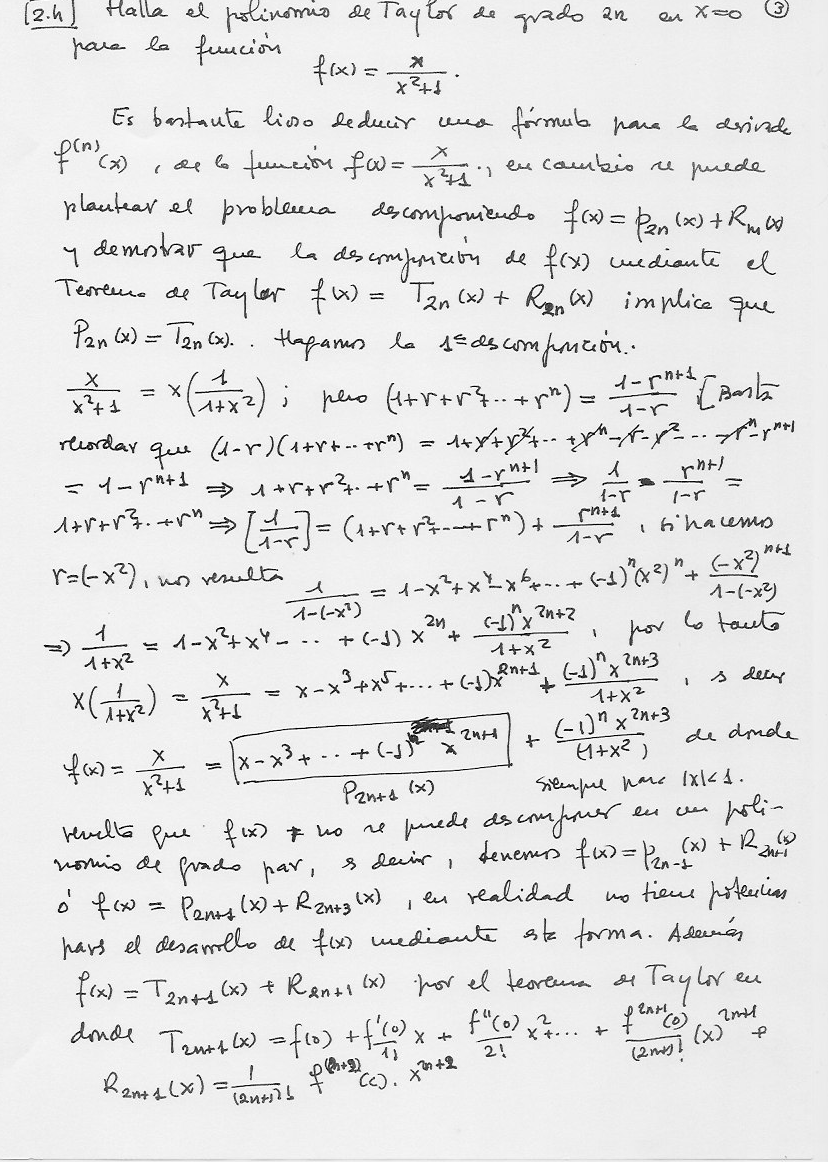 [2.h] Halla el polinomio de Taylor de grado 2n en x=0 ③
para la función
f(x) = x/(x²+1).
Es bastante lioso deducir una fórmula para la derivada
f⁽ⁿ⁾(x), de la función f(x) = x/(x²+1)., en cambio se puede
plantear el problema descomponiendo f(x) = p₂ₙ(x) + Rₘ(x)
y demostrar que la descomposición de f(x) mediante el
Teorema de Taylor f(x) = T₂ₙ(x) + R₂ₙ(x) implica que
P₂ₙ(x) = T₂ₙ(x). . Hagamos la 1ª descomposición..
x/(x²+1) = x(1/(1+x²)) ; pero (1+r+r²+..+rⁿ) = (1-rⁿ⁺¹)/(1-r) [Basta
recordar que (1-r)(1+r+..+rⁿ) = 1+r+r²+..+rⁿ-r-r²-...-rⁿ-rⁿ⁺¹
= 1-rⁿ⁺¹ ⇒ 1+r+r²+..+rⁿ = (1-rⁿ⁺¹)/(1-r) ⇒ 1/(1-r) - rⁿ⁺¹/(1-r) =
1+r+r²+..+rⁿ ⇒ [1/(1-r)] = (1+r+r²+---+rⁿ) + rⁿ⁺¹/(1-r), si hacemos
r=(-x²), nos resulta 1/(1-(-x²)) = 1-x²+x⁴-x⁶+...+(-1)ⁿ(x²)ⁿ + (-x²)ⁿ⁺¹/(1-(-x²))
⇒ 1/(1+x²) = 1-x²+x⁴-...+(-1)x²ⁿ + (-1)ⁿx²ⁿ⁺²/(1+x²), por lo tanto
x(1/(1+x²)) = x/(x²+1) = x-x³+x⁵+...+(-1)x²ⁿ⁺¹ + (-1)ⁿx²ⁿ⁺³/(1+x²), es decir
f(x) = x/(x²+1) = [x-x³+...+(-1)ⁿ x²ⁿ⁺¹] + (-1)ⁿx²ⁿ⁺³/(1+x²) de donde
P₂ₙ₊₁(x) siempre para |x|<1.
resulta que f(x) no se puede descomponer en un poli-
nomio de grado par, es decir, tenemos f(x) = p₂ₙ₋₁(x) + R₂ₙ₊₁(x)
ó f(x) = P₂ₙ₊₁(x) + R₂ₙ₊₃(x), en realidad no tiene potencias
pares el desarrollo de f(x) mediante esta forma. Además
f(x) = T₂ₙ₊₁(x) + R₂ₙ₊₁(x) por el teorema de Taylor en
donde T₂ₙ₊₁(x) = f(0) + f'(0)/1! x + f''(0)/2! x² + ... + f²ⁿ⁺¹(0)/(2n+1)! (x)²ⁿ⁺¹ +
R₂ₙ₊₁(x) = 1/(2n+1)! f⁽ⁿ⁺²⁾(c). x²ⁿ⁺²